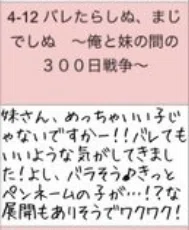 4-12 バレたらしぬ、まじ
でしぬ　〜俺と妹の間の
３００日戦争〜
妹さん、めっちゃいい子じ
ゃないですかー!!バレても
いいような気がしてきまし
た!よし、バラそう♪きっと
ペンネームの子が…!?な
展開もありそうでワクワク!